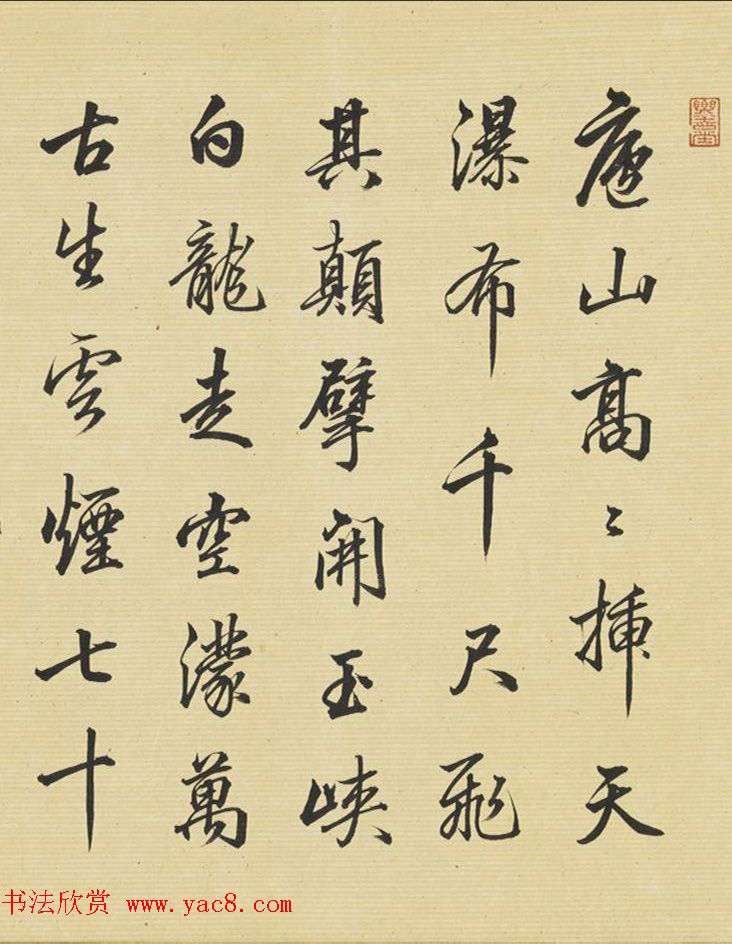 廬山高〻揷天
瀑布千尺飛
其顛擘開玉峽
白龍走空濛萬
古生雲煙七十
书法欣赏 www.yac8.com